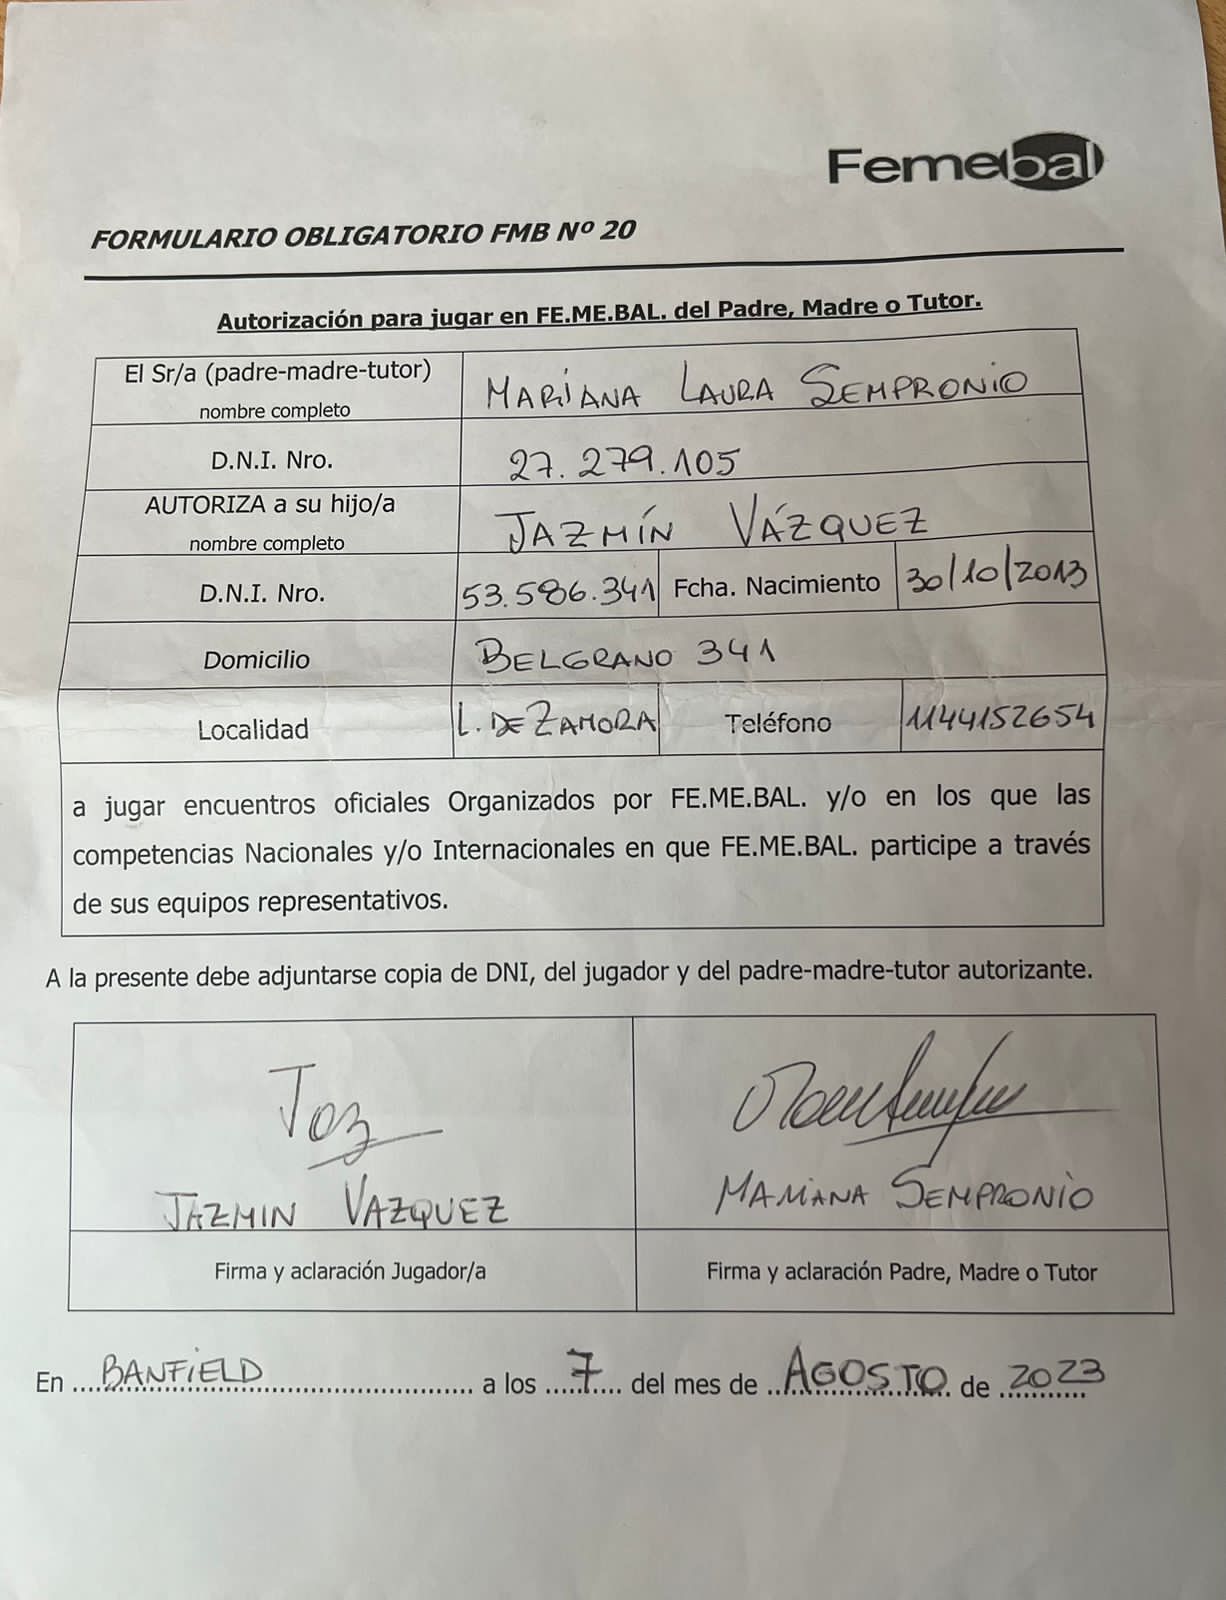 Femebal
FORMULARIO OBLIGATORIO FMB Nº 20
Autorización para jugar en FE.ME.BAL. del Padre, Madre o Tutor.
El Sr/a (padre-madre-tutor) MARIANA LAURA SEMPRONIO
nombre completo
D.N.I. Nro. 27.279.105
AUTORIZA a su hijo/a JAZMÍN VÁZQUEZ
nombre completo
D.N.I. Nro. 53.586.341 Fcha. Nacimiento 30/10/2013
Domicilio BELGRANO 341
Localidad L. DE ZAMORA Teléfono 1144152654
a jugar encuentros oficiales Organizados por FE.ME.BAL. y/o en los que las
competencias Nacionales y/o Internacionales en que FE.ME.BAL. participe a través
de sus equipos representativos.
A la presente debe adjuntarse copia de DNI, del jugador y del padre-madre-tutor autorizante.
Jaz
JAZMIN VAZQUEZ MARIANA SEMPRONIO
Firma y aclaración Jugador/a Firma y aclaración Padre, Madre o Tutor
En BANFIELD a los 7 del mes de AGOSTO de 2023